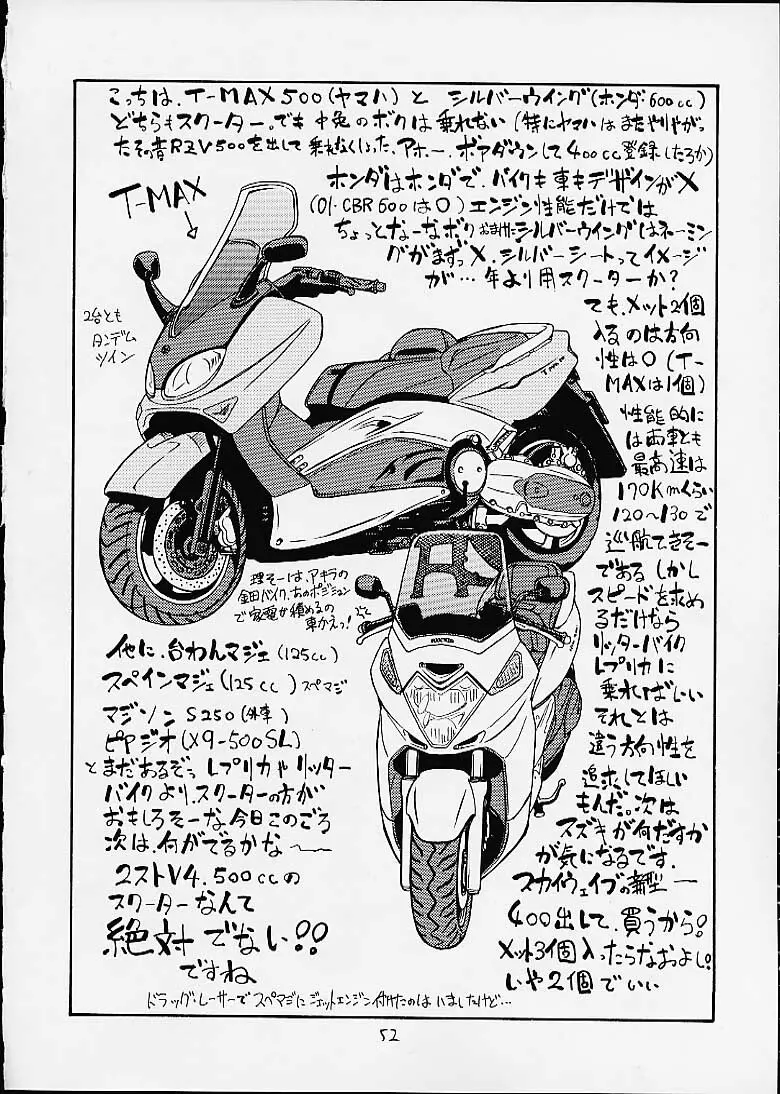 こっちは、T-MAX500(ヤマハ)と シルバーウイング(ホンダ・600cc)
どちらもスクーター。でも中免のボクは乗れない(特にヤマハはまたやりやがっ
たその昔RZV500を出して乗れなくしった、アホー、ボアダウンして400cc登録したろか)
ホンダはホンダで、バイクも車もデザインがX
(01・CBR600は○)エンジン性能だけでは
ちょっとなーなボク おまけにシルバーウイングはネーミン
グがまずっX、シルバーシートってイメージ
が…年より用スクーターか?
T-MAX
2台とも
タンデム
ツイン
でも、メット2個
入るのは方向
性は○(T-
MAXは1個)
性能的に
は両車とも
最高速は
170Kmくらい
120〜130で
巡航できそー
である しかし
スピードを求め
るだけなら
リッターバイク
レプリカに
乗ればいい
それとは
違う方向性を
追求してほしい
もんだ。次は
スズキが何だすか
が気になるです。
スカイウェイブの新型ー
400出して、買うから!
メット3個入ったらなおよし!
いや2個でいい
理そーは、アキラの
金田バイク、あのポジション
で家電が積めるの
車かえっ!
他に、台わんマジェ(125cc)
スペインマジェ(125cc)スペマジ
マジソンS250(外車)
ピヤジオ(X9-500SL)
とまだあるぞっ レプリカやリッター
バイクより、スクーターの方が
おもしろそーな、今日このごろ
次は、何がでるかな〜
2ストV4、500ccの
スクーターなんて
絶対でない!!
ですね
ドラッグ・レーサーでスペマジにジェットエンジン付けたのはいましたけど…
52